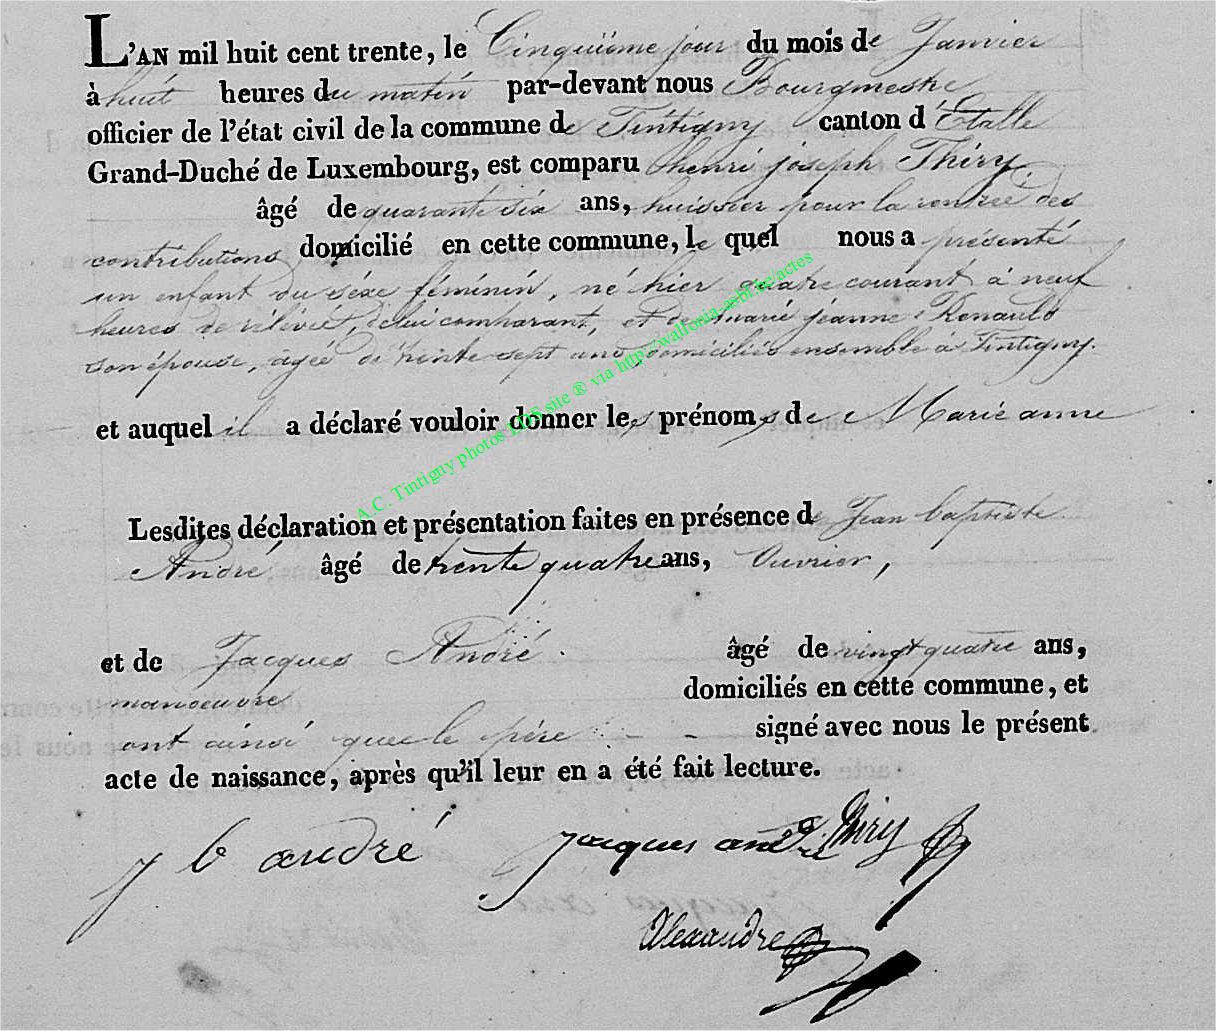 L'AN mil huit cent trente, le Cinquiéme jour du mois de Janvier
à huit heures du matin par-devant nous Bourgmestre
officier de l'état civil de la commune de Tintigny canton d'Etalle
Grand-Duché de Luxembourg, est comparu henri joseph Thiry
âgé de quarante six ans, huissier pour la rentrée des
contributions domicilié en cette commune, le quel nous a présenté
un enfant du séxe féminin, né hier quatre courant à neuf
heures de rélévée, de lui comparant, et de marie jeanne Renauld
son épouse, agée de trente sept ans, domiciliés ensemble à Tintigny.
et auquel il a déclaré vouloir donner les prénoms de Marie anne
Lesdites déclaration et présentation faites en présence de Jean baptiste
André, âgé de trente quatre ans, Ouvrier,
et de Jacques André. âgé de vingt quatre ans,
manoeuvre domiciliés en cette commune, et
ont ainsi que le père - - signé avec nous le présent
acte de naissance, après qu'il leur en a été fait lecture.
j b andré jacques andré Thiry
Alexandre
A.C. Tintigny photos LDS site ® via http://wallonia-asbl.be/actes